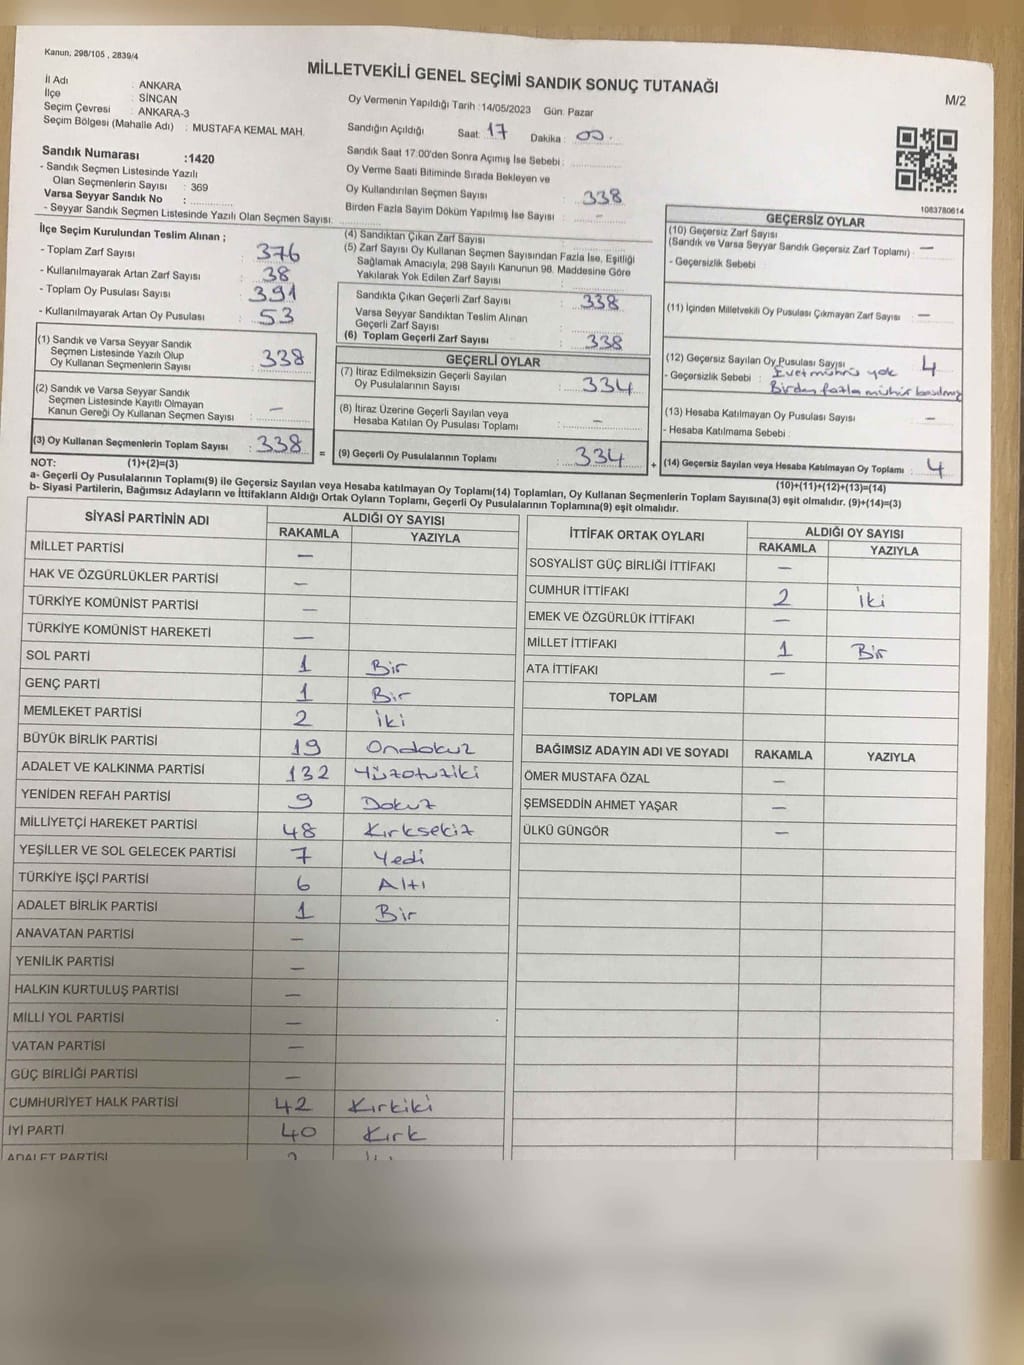 Kanun, 298/105 , 2839/4
MİLLETVEKİLİ GENEL SEÇİMİ SANDIK SONUÇ TUTANAĞI
M/2
İl Adı : ANKARA
İlçe : SİNCAN
Seçim Çevresi : ANKARA-3
Seçim Bölgesi (Mahalle Adı) : MUSTAFA KEMAL MAH.
Oy Vermenin Yapıldığı Tarih : 14/05/2023 Gün: Pazar
Sandığın Açıldığı Saat: 17 Dakika : 00
Sandık Saat 17:00'den Sonra Açımış İse Sebebi :
Oy Verme Saati Bitiminde Sırada Bekleyen ve
Oy Kullandırılan Seçmen Sayısı : 338
Birden Fazla Sayım Döküm Yapılmış İse Sayısı : -
Sandık Numarası :1420
- Sandık Seçmen Listesinde Yazılı
Olan Seçmenlerin Sayısı : 369
Varsa Seyyar Sandık No :
- Seyyar Sandık Seçmen Listesinde Yazılı Olan Seçmen Sayısı:
1083780614
İlçe Seçim Kurulundan Teslim Alınan ;
- Toplam Zarf Sayısı : 376
- Kullanılmayarak Artan Zarf Sayısı : 38
- Toplam Oy Pusulası Sayısı : 391
- Kullanılmayarak Artan Oy Pusulası : 53
(1) Sandık ve Varsa Seyyar Sandık
Seçmen Listesinde Yazılı Olup
Oy Kullanan Seçmenlerin Sayısı : 338
(2) Sandık ve Varsa Seyyar Sandık
Seçmen Listesinde Kayıtlı Olmayan
Kanun Gereği Oy Kullanan Seçmen Sayısı : -
(3) Oy Kullanan Seçmenlerin Toplam Sayısı : 338
(4) Sandıktan Çıkan Zarf Sayısı :
(5) Zarf Sayısı Oy Kullanan Seçmen Sayısından Fazla İse, Eşitliği
Sağlamak Amacıyla, 298 Sayılı Kanunun 98. Maddesine Göre
Yakılarak Yok Edilen Zarf Sayısı :
Sandıkta Çıkan Geçerli Zarf Sayısı : 338
Varsa Seyyar Sandıktan Teslim Alınan
Geçerli Zarf Sayısı :
(6) Toplam Geçerli Zarf Sayısı : 338
GEÇERLİ OYLAR
(7) İtiraz Edilmeksizin Geçerli Sayılan
Oy Pusulalarının Sayısı : 334
(8) İtiraz Üzerine Geçerli Sayılan veya
Hesaba Katılan Oy Pusulası Toplamı : -
= (9) Geçerli Oy Pusulalarının Toplamı : 334
GEÇERSİZ OYLAR
(10) Geçersiz Zarf Sayısı
(Sandık ve Varsa Seyyar Sandık Geçersiz Zarf Toplamı) : -
- Geçersizlik Sebebi :
(11) İçinden Milletvekili Oy Pusulası Çıkmayan Zarf Sayısı : -
(12) Geçersiz Sayılan Oy Pusulası Sayısı : 4
- Geçersizlik Sebebi : Evet mührü yok
Birden fazla mühür basılmış
(13) Hesaba Katılmayan Oy Pusulası Sayısı : -
- Hesaba Katılmama Sebebi :
+ (14) Geçersiz Sayılan veya Hesaba Katılmayan Oy Toplamı : 4
NOT: (1)+(2)=(3)
(10)+(11)+(12)+(13)=(14)
a- Geçerli Oy Pusulalarının Toplamı(9) ile Geçersiz Sayılan veya Hesaba katılmayan Oy Toplamı(14) Toplamları, Oy Kullanan Seçmenlerin Toplam Sayısına(3) eşit olmalıdır. (9)+(14)=(3)
b- Siyasi Partilerin, Bağımsız Adayların ve İttifakların Aldığı Ortak Oyların Toplamı, Geçerli Oy Pusulalarının Toplamına(9) eşit olmalıdır.
SİYASİ PARTİNİN ADI ALDIĞI OY SAYISI
RAKAMLA YAZIYLA
MİLLET PARTİSİ -
HAK VE ÖZGÜRLÜKLER PARTİSİ -
TÜRKİYE KOMÜNİST PARTİSİ -
TÜRKİYE KOMÜNİST HAREKETİ -
SOL PARTİ 1 Bir
GENÇ PARTİ 1 Bir
MEMLEKET PARTİSİ 2 İki
BÜYÜK BİRLİK PARTİSİ 19 Ondokuz
ADALET VE KALKINMA PARTİSİ 132 Yüzotuziki
YENİDEN REFAH PARTİSİ 9 Dokuz
MİLLİYETÇİ HAREKET PARTİSİ 48 Kırksekiz
YEŞİLLER VE SOL GELECEK PARTİSİ 7 Yedi
TÜRKİYE İŞÇİ PARTİSİ 6 Altı
ADALET BİRLİK PARTİSİ 1 Bir
ANAVATAN PARTİSİ -
YENİLİK PARTİSİ -
HALKIN KURTULUŞ PARTİSİ -
MİLLİ YOL PARTİSİ -
VATAN PARTİSİ -
GÜÇ BİRLİĞİ PARTİSİ -
CUMHURİYET HALK PARTİSİ 42 Kırkiki
İYİ PARTİ 40 Kırk
ADALET PARTİSİ
İTTİFAK ORTAK OYLARI ALDIĞI OY SAYISI
RAKAMLA YAZIYLA
SOSYALİST GÜÇ BİRLİĞİ İTTİFAKI -
CUMHUR İTTİFAKI 2 İki
EMEK VE ÖZGÜRLÜK İTTİFAKI -
MİLLET İTTİFAKI 1 Bir
ATA İTTİFAKI -
TOPLAM
BAĞIMSIZ ADAYIN ADI VE SOYADI RAKAMLA YAZIYLA
ÖMER MUSTAFA ÖZAL -
ŞEMSEDDİN AHMET YAŞAR -
ÜLKÜ GÜNGÖR -